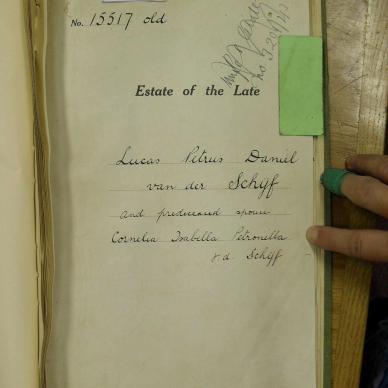 No. 15517 old
no 3208/40
Estate of the Late
Lucas Petrus Daniel
van der Schyf
and predeceased spouse
Cornelia Isabella Petronella
v.d. Schyf